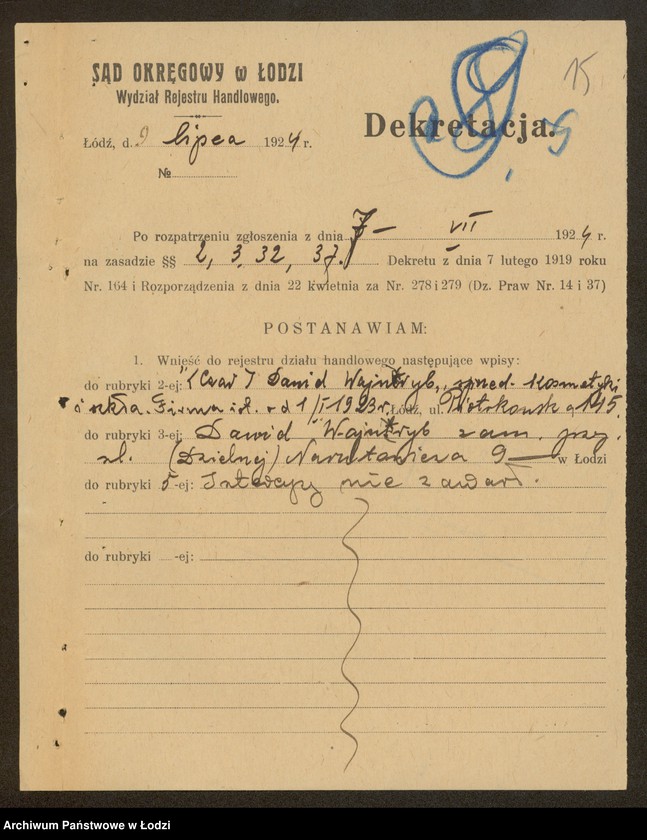 15
SĄD OKRĘGOWY w ŁODZI
Wydział Rejestru Handlowego.
Dekretacja.
Łódź, d. 9 lipca 1924 r.
№
Po rozpatrzeniu zgłoszenia z dnia 7- VII 1924 r.
na zasadzie §§ 2, 3, 32, 37. Dekretu z dnia 7 lutego 1919 roku
Nr. 164 i Rozporządzenia z dnia 22 kwietnia za Nr. 278 i 279 (Dz. Praw Nr. 14 i 37)
POSTANAWIAM:
1. Wnieść do rejestru działu handlowego następujące wpisy:
do rubryki 2-ej: Dawid Wajntryb, sprzed. kosmetyki
i szkła. Firma ist. od 1/I 1923 r. Łódź, ul. Piotrkowska 145.
do rubryki 3-ej: Dawid Wajntryb zam. przy
ul. (Dzielnej) Narutowicza 9 w Łodzi
do rubryki 5-ej: Intercyzy nie zawarł.
do rubryki -ej:
Archiwum Państwowe w Łodzi